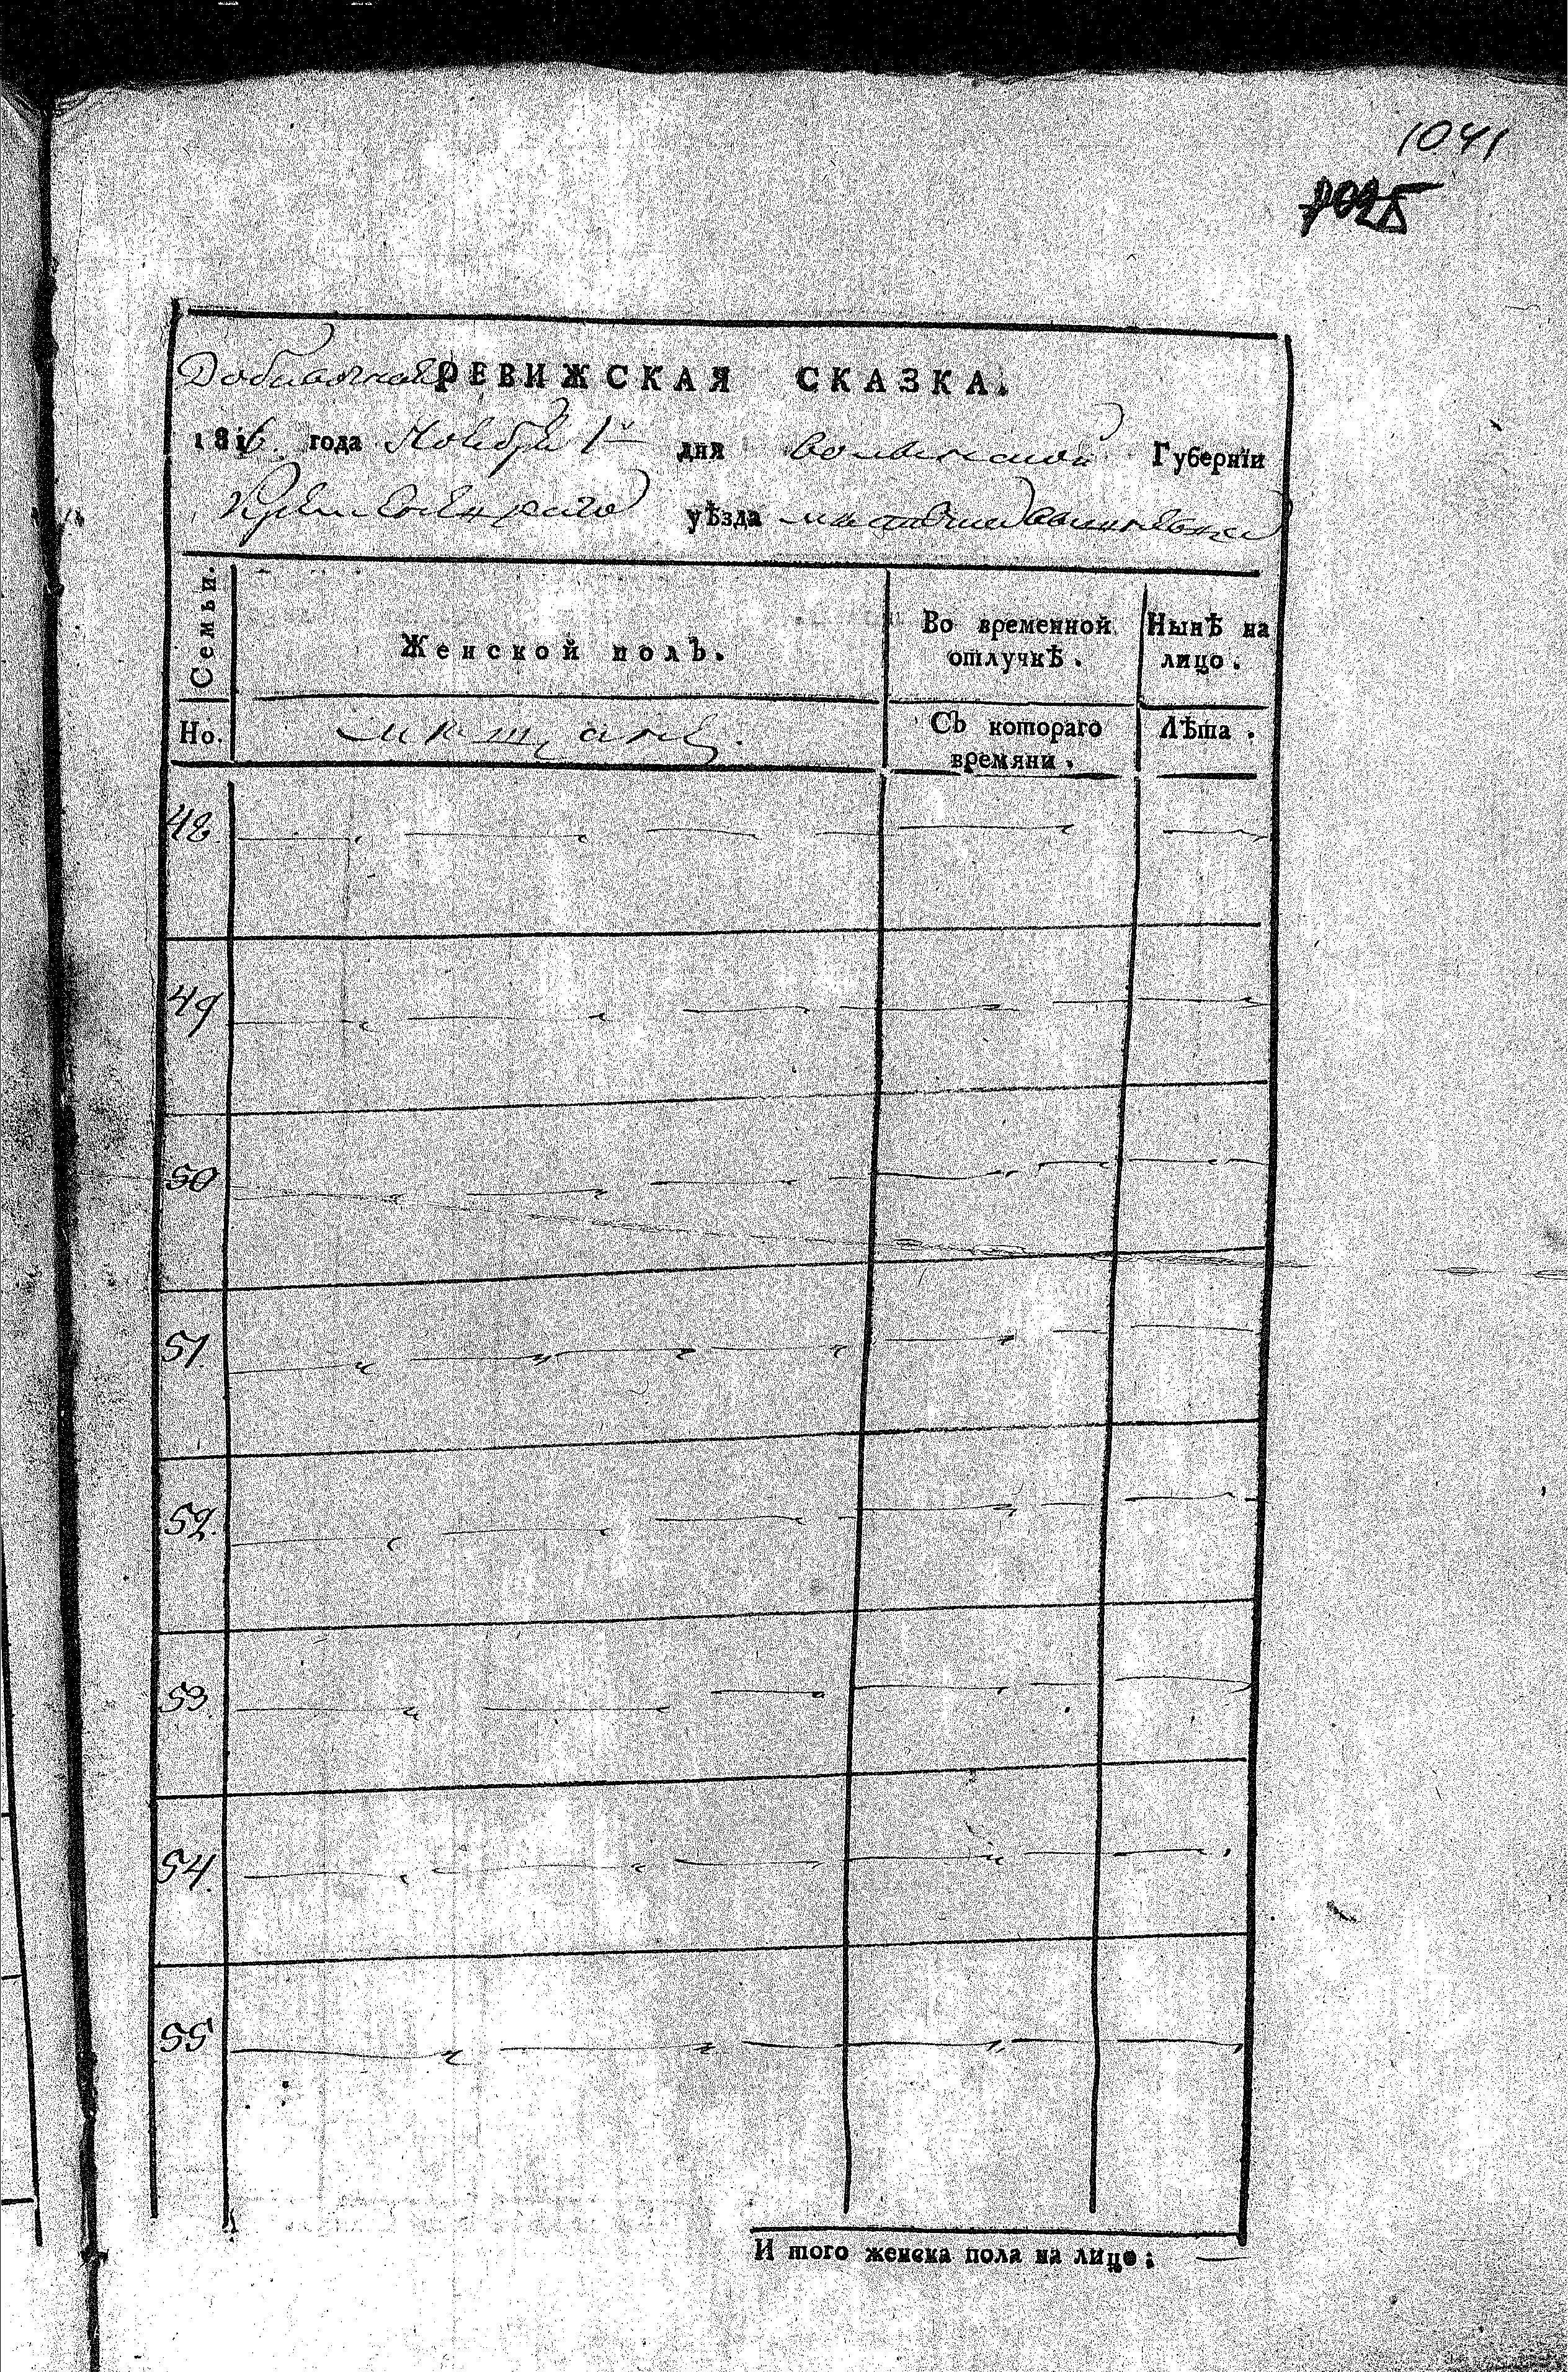 1041
1025
Добавочная РЕВИЖСКАЯ СКАЗКА.
1816 года Ноября 1го дня Волынской Губернїи
Кременецкаго уѣзда
Семьи.
Женской полъ.
Во временной отлучкѣ.
Нынѣ на лицо.
Но.
мещане.
Съ котораго времяни.
Лѣта.
48
49
50
51.
52.
53.
54.
55
И того женска пола на лицо: —